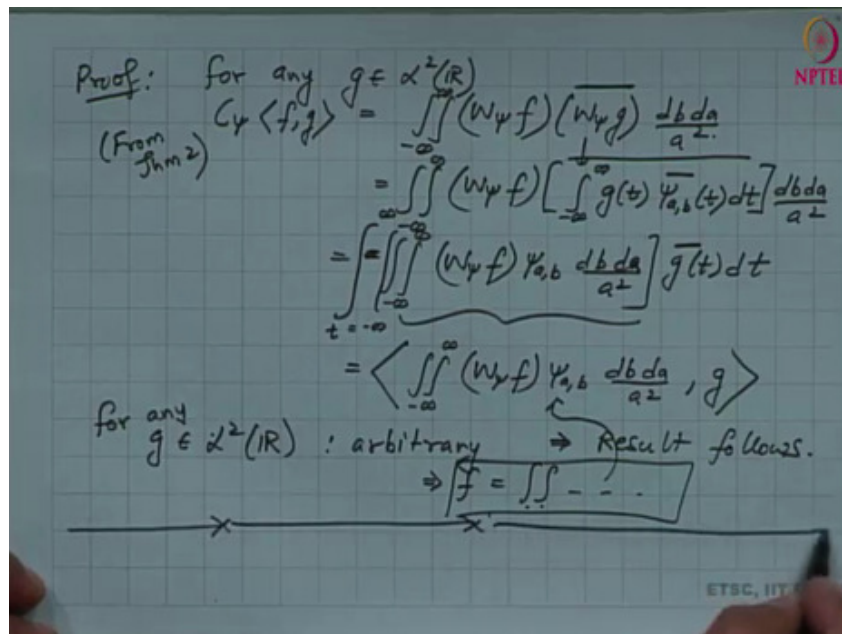 Proof: for any g ∈ L²(ℝ)
NPTEL
(From Thm 2) C_ψ <f,g> = ∫∫_{-∞}^{∞} (W_ψ f) (\overline{W_ψ g}) \frac{db da}{a²}.
= ∫∫_{-∞}^{∞} (W_ψ f) [\overline{∫_{-∞}^{∞} g(t) \overline{ψ_{a,b}}(t) dt}] \frac{db da}{a²}
= ∫_{t=-∞}^{∞} [∫∫_{-∞}^{∞} (W_ψ f) ψ_{a,b} \frac{db da}{a²}] \overline{g(t)} dt
= < ∫∫_{-∞}^{∞} (W_ψ f) ψ_{a,b} \frac{db da}{a²} , g >
for any g ∈ L²(ℝ) : arbitrary ⇒ Result follows.
⇒ f = ∫∫ - - - .
ETSC, IIT